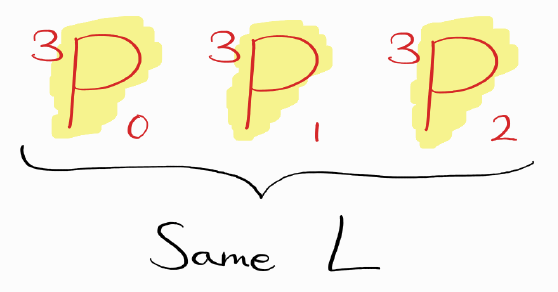 ³P₀ ³P₁ ³P₂
Same L